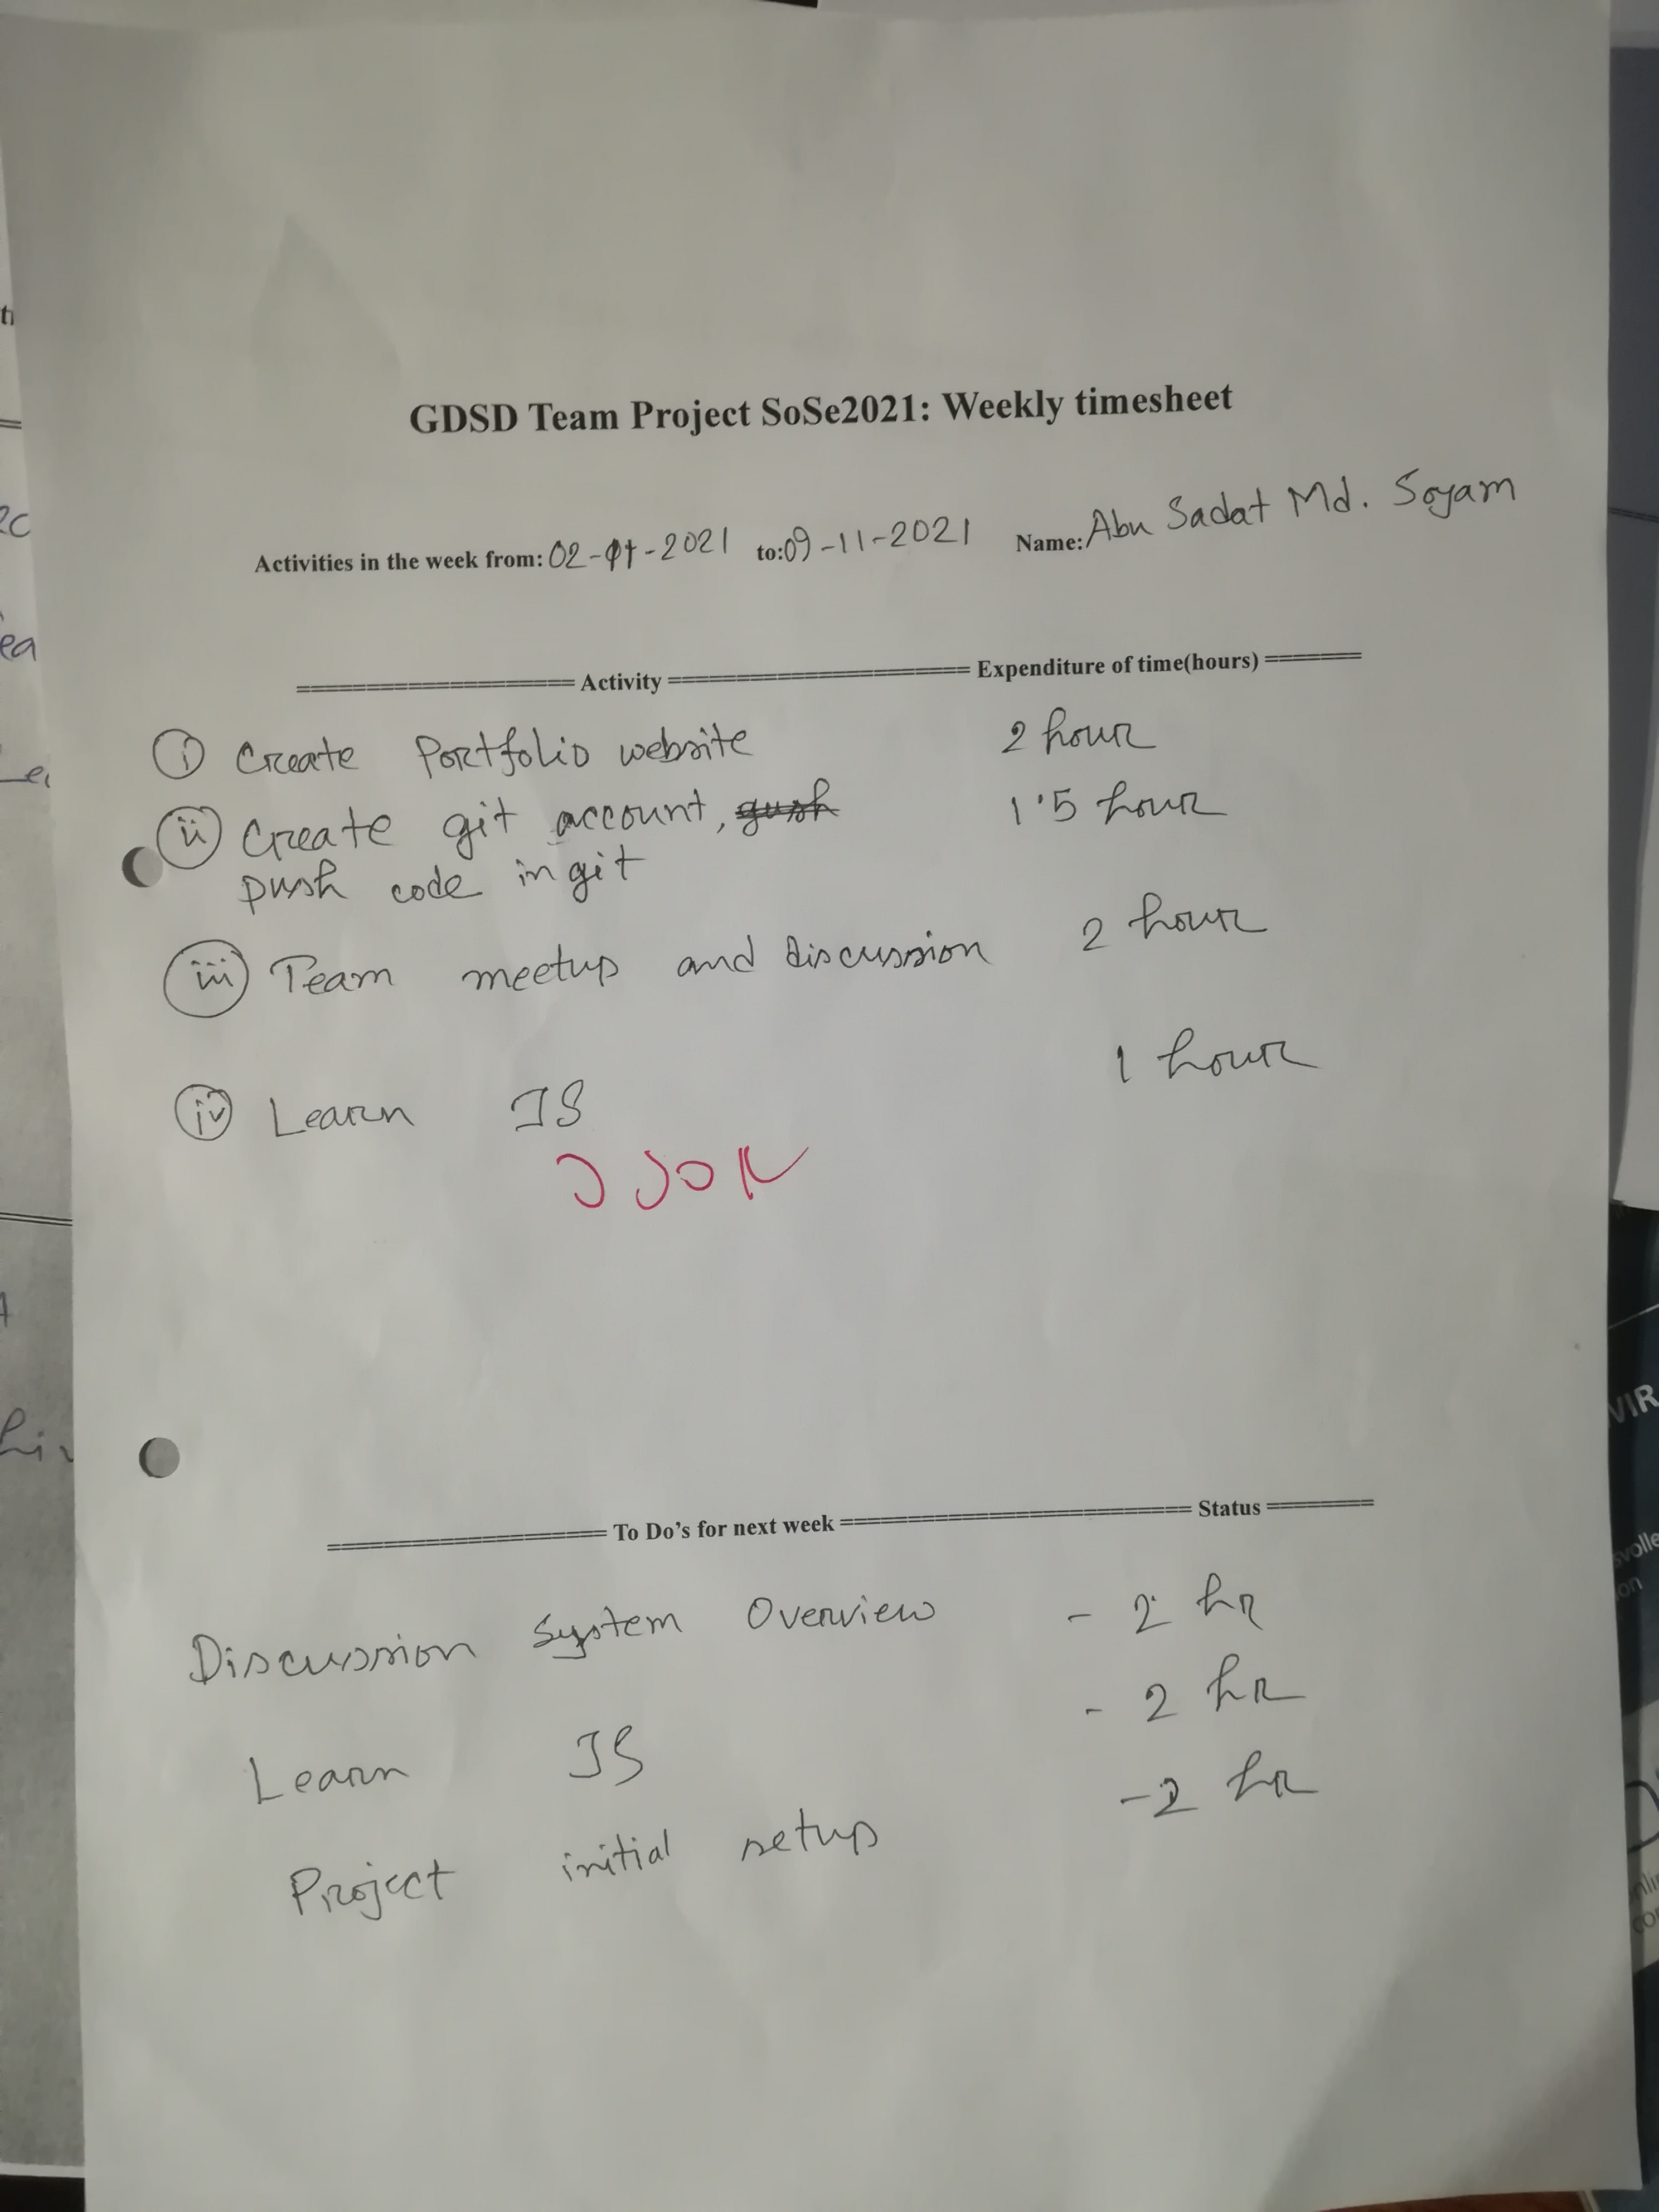 GDSD Team Project SoSe2021: Weekly timesheet
Activities in the week from: 02-11-2021 to: 09-11-2021 Name: Abu Sadat Md. Soyam
Activity Expenditure of time(hours)
i Create Portfolio website 2 hour
ii Create git account, 1.5 hour
push code in git
iii Team meetup and discussion 2 hour
iv Learn JS 1 hour
To Do's for next week Status
Discussion System Overview - 2 hr
Learn JS - 2 hr
Project initial setup - 2 hr